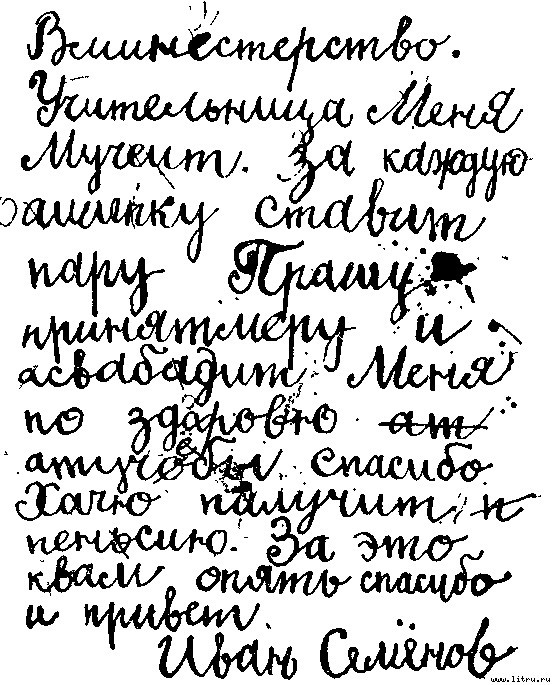 Вминестерство.
Учительница Меня
Мучеит. За каждую
ашипку ставит
пару Прашу
принятмеру и
асвабадит Меня
по здаровю ат
атучобы спасибо
Хачю палучит п
пеньсию. За это
квам опять спасибо
и привет.
Иванъ Семёнов
www.litru.ru